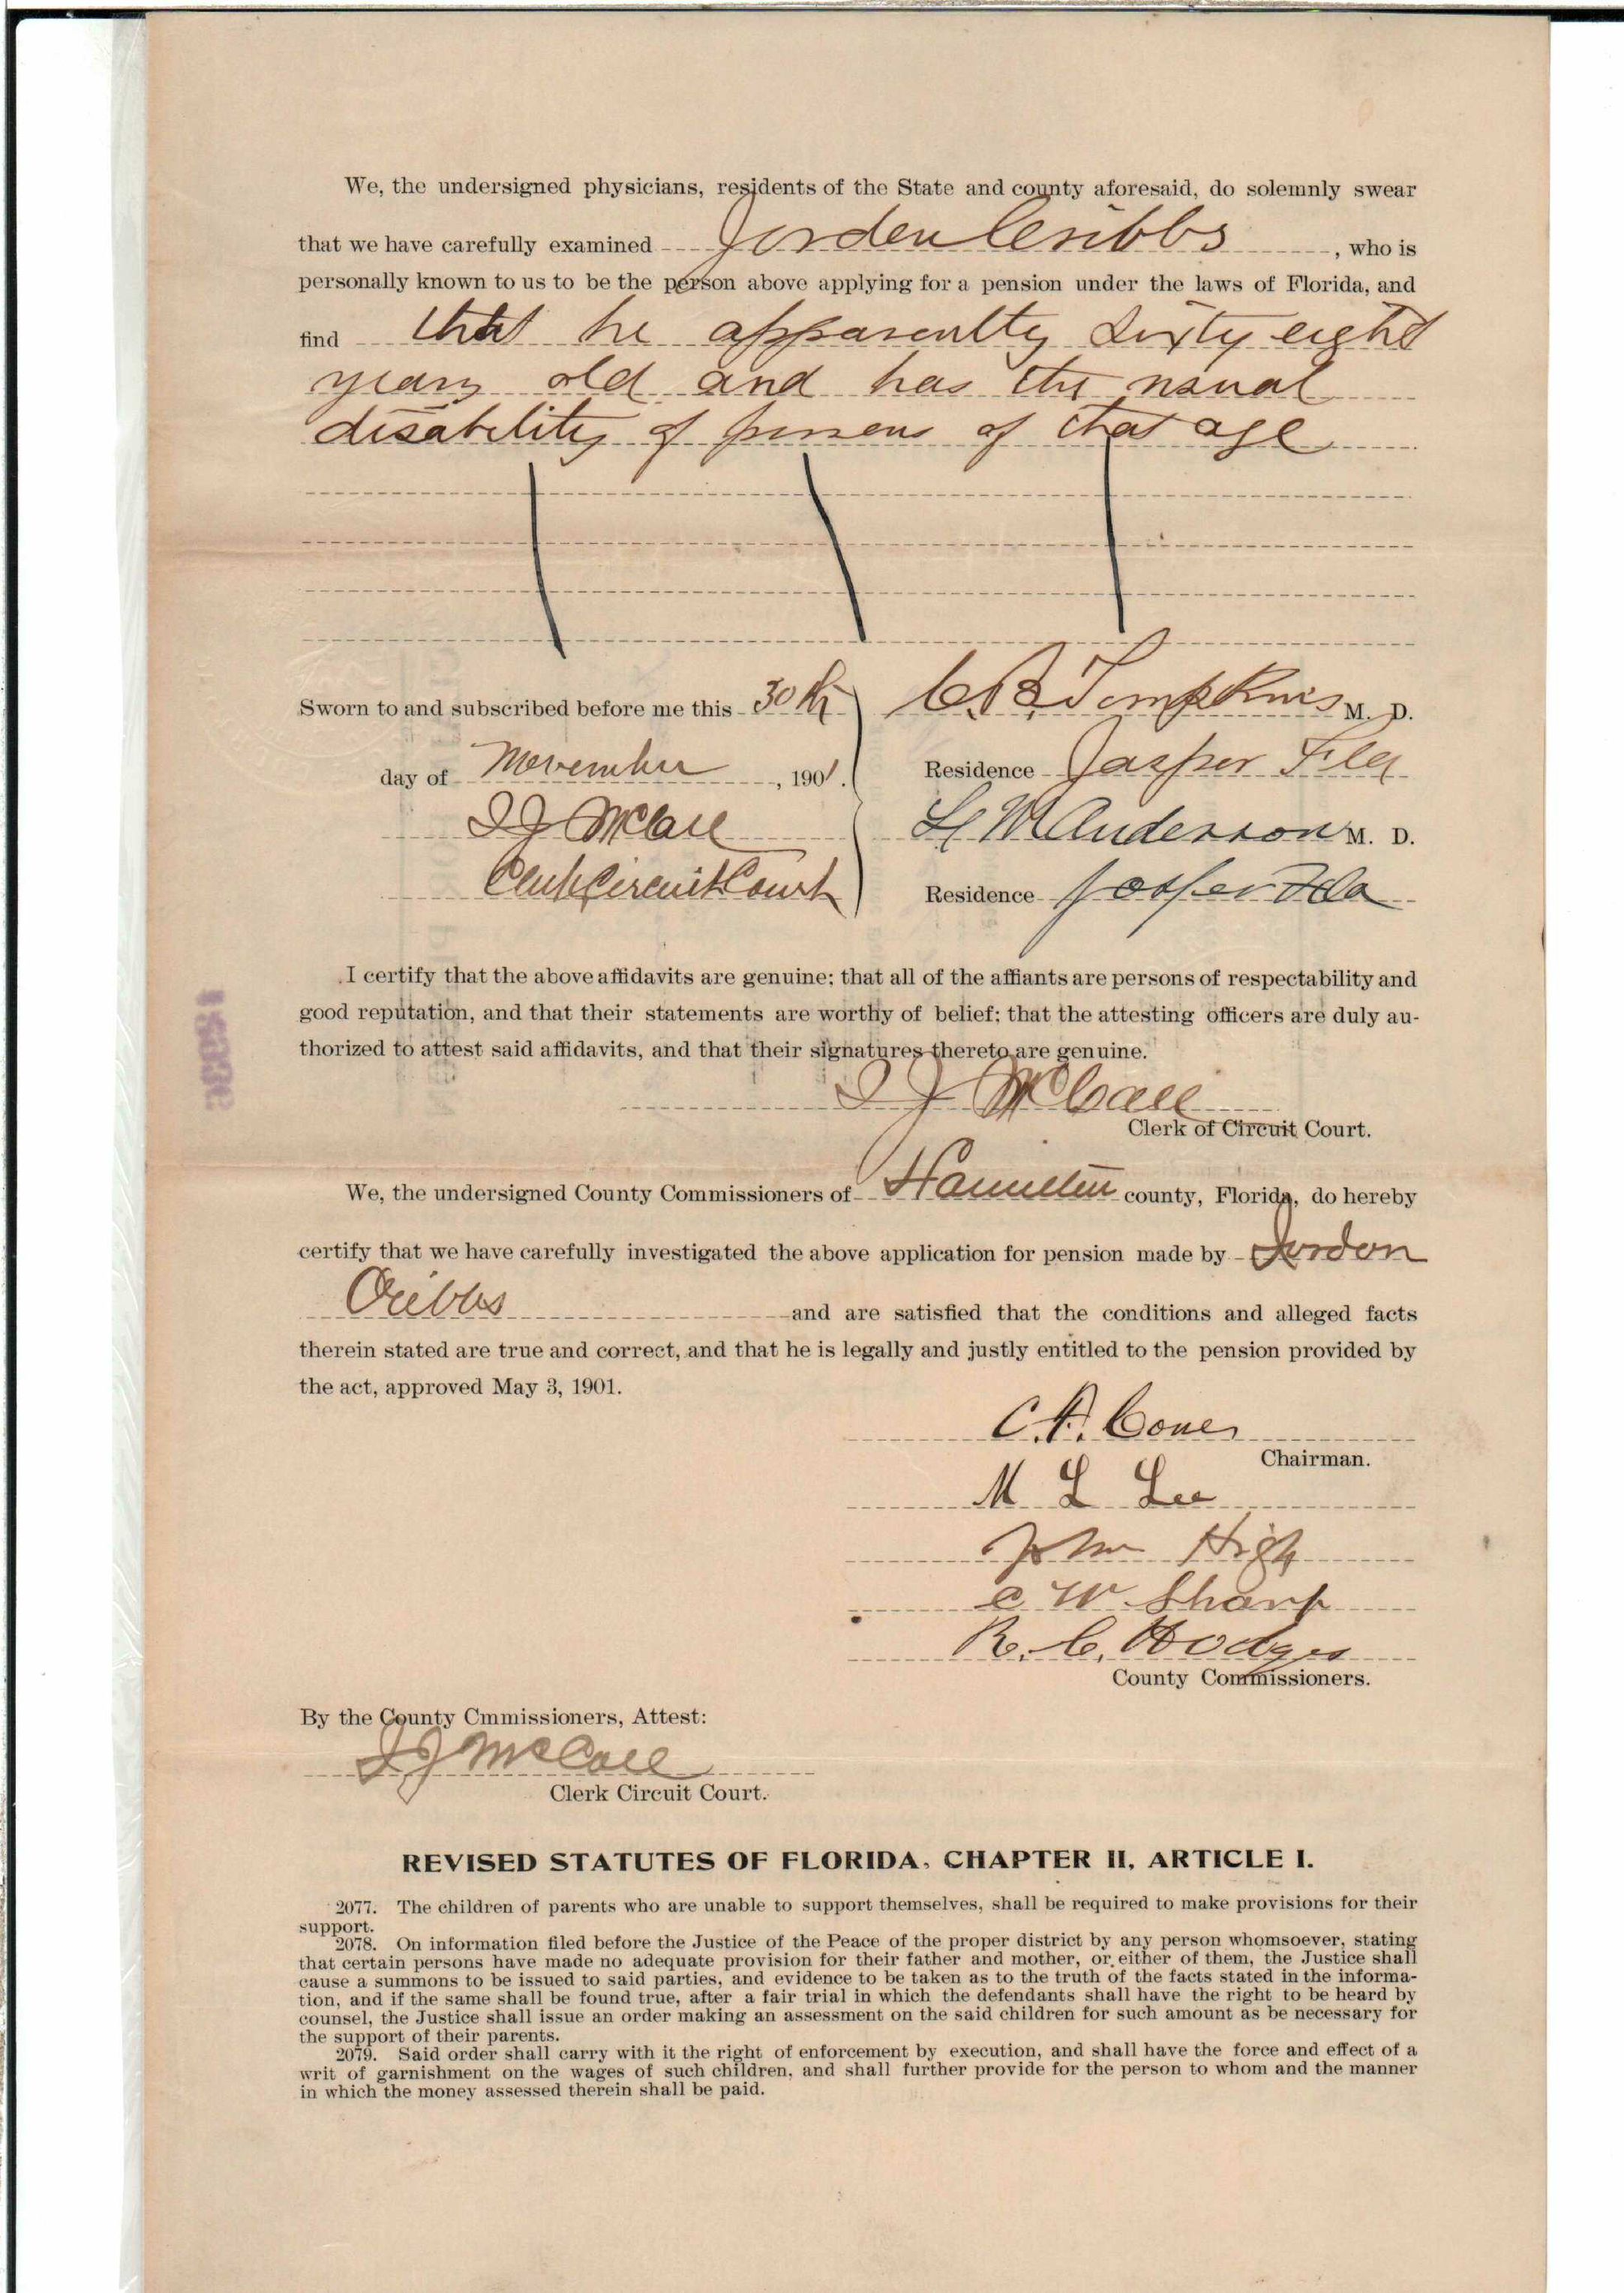 We, the undersigned physicians, residents of the State and county aforesaid, do solemnly swear
that we have carefully examined Jorden Cribbs, who is
personally known to us to be the person above applying for a pension under the laws of Florida, and
find that he apparently sixty eight
years old and has the usual
disability of persons of that age
Sworn to and subscribed before me this 30th C. B. Tompkins M. D.
day of November, 1901. Residence Jasper Fla
McCall M Anderson M. D.
Clerk Circuit Court Residence Jasper Fla
I certify that the above affidavits are genuine; that all of the affiants are persons of respectability and
good reputation, and that their statements are worthy of belief; that the attesting officers are duly au-
thorized to attest said affidavits, and that their signatures thereto are genuine.
McCall
Clerk of Circuit Court.
We, the undersigned County Commissioners of Hamilton county, Florida, do hereby
certify that we have carefully investigated the above application for pension made by Jordon
Cribbs and are satisfied that the conditions and alleged facts
therein stated are true and correct, and that he is legally and justly entitled to the pension provided by
the act, approved May 3, 1901.
C. A. Cone
Chairman.
M L Lee
John High
C W Sharp
R. C. Hodges
County Commissioners.
By the County Cmmissioners, Attest:
McCall
Clerk Circuit Court.
REVISED STATUTES OF FLORIDA, CHAPTER II, ARTICLE I.
2077. The children of parents who are unable to support themselves, shall be required to make provisions for their
support.
2078. On information filed before the Justice of the Peace of the proper district by any person whomsoever, stating
that certain persons have made no adequate provision for their father and mother, or either of them, the Justice shall
cause a summons to be issued to said parties, and evidence to be taken as to the truth of the facts stated in the informa-
tion, and if the same shall be found true, after a fair trial in which the defendants shall have the right to be heard by
counsel, the Justice shall issue an order making an assessment on the said children for such amount as be necessary for
the support of their parents.
2079. Said order shall carry with it the right of enforcement by execution, and shall have the force and effect of a
writ of garnishment on the wages of such children, and shall further provide for the person to whom and the manner
in which the money assessed therein shall be paid.